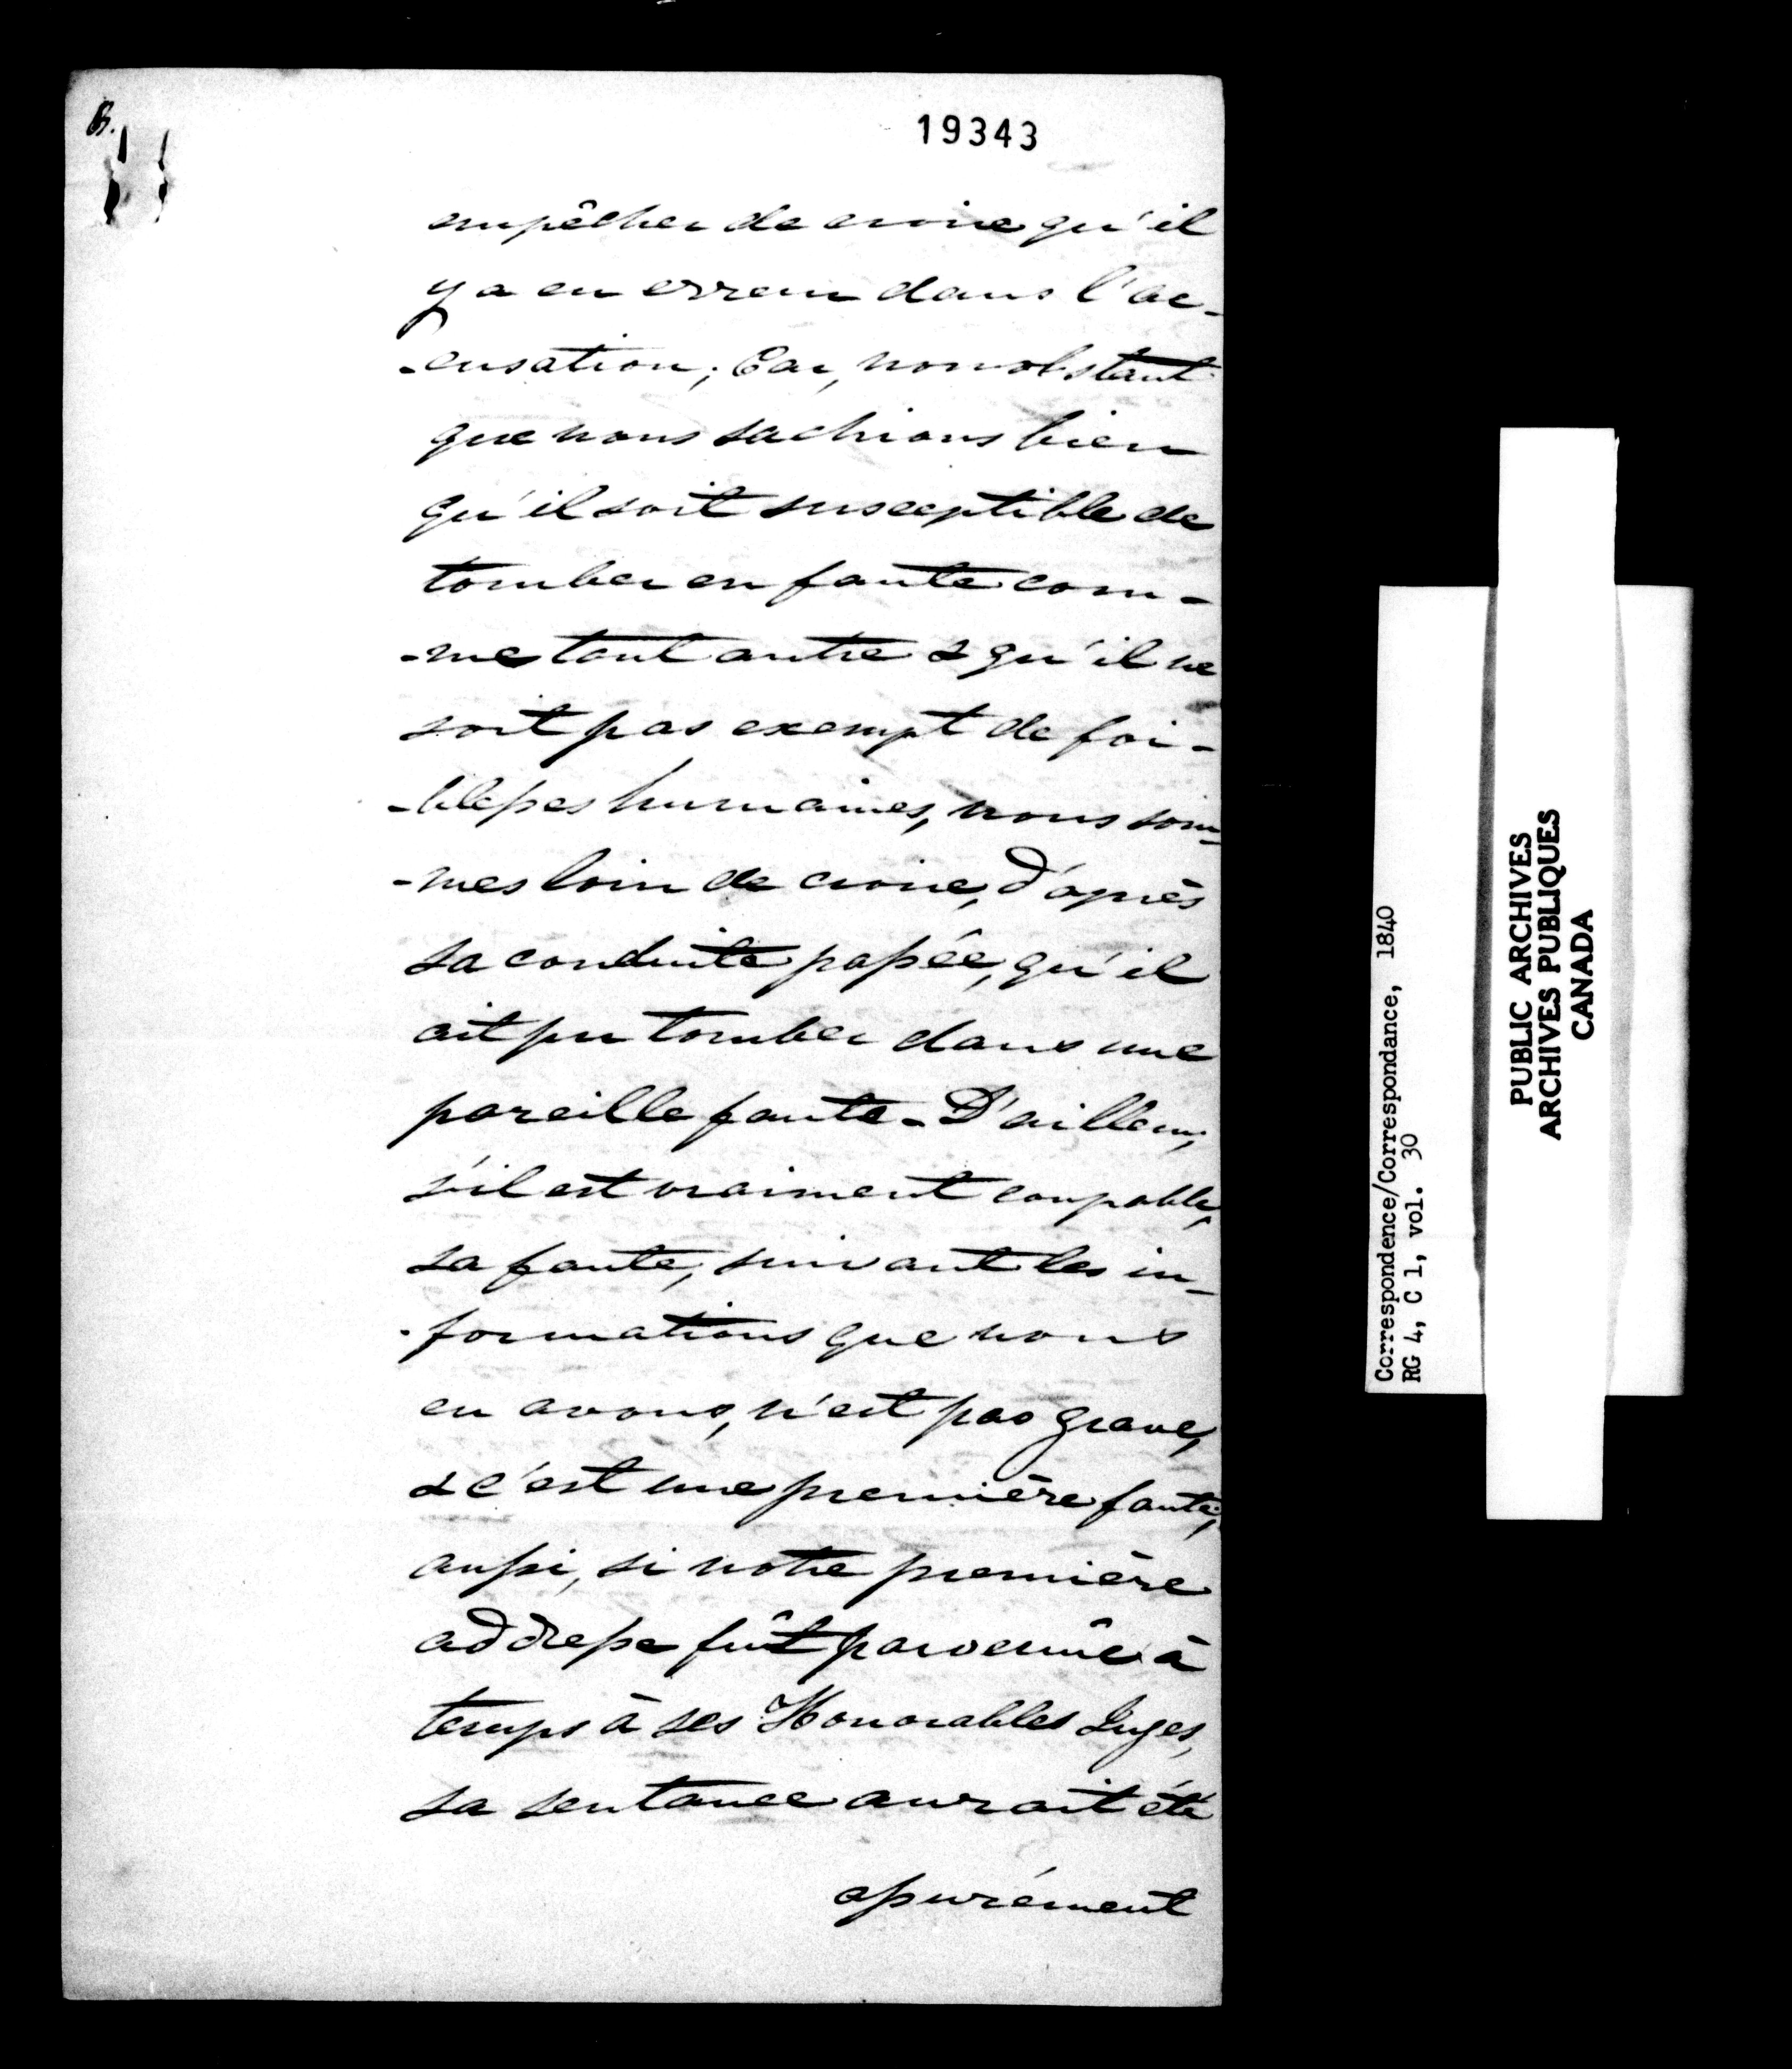 19343
empêcher de croire qu'il
y a eu erreur dans l'ac-
-cusation; Car, nonobstant
que nous sachions bien
qu'il soit susceptible de
tomber en faute com-
-me tout autre & qu'il ne
soit pas exempt de foi-
-blesses humaines, nous som-
-mes loin de croire, d'après
sa conduite passée, qu'il
ait pu tomber dans une
pareille faute - D'ailleurs,
s'il est vraiment coupable,
sa faute, suivant les in-
-formations que nous
en avons, n'est pas grave,
& c'est une première faute;
aussi, si notre première
addresse fût parvenûe à
temps à ses Honorables Juges,
sa sentance aurait été
assurément
Correspondence/Correspondance, 1840
RG 4, C 1, vol. 30
PUBLIC ARCHIVES
ARCHIVES PUBLIQUES
CANADA